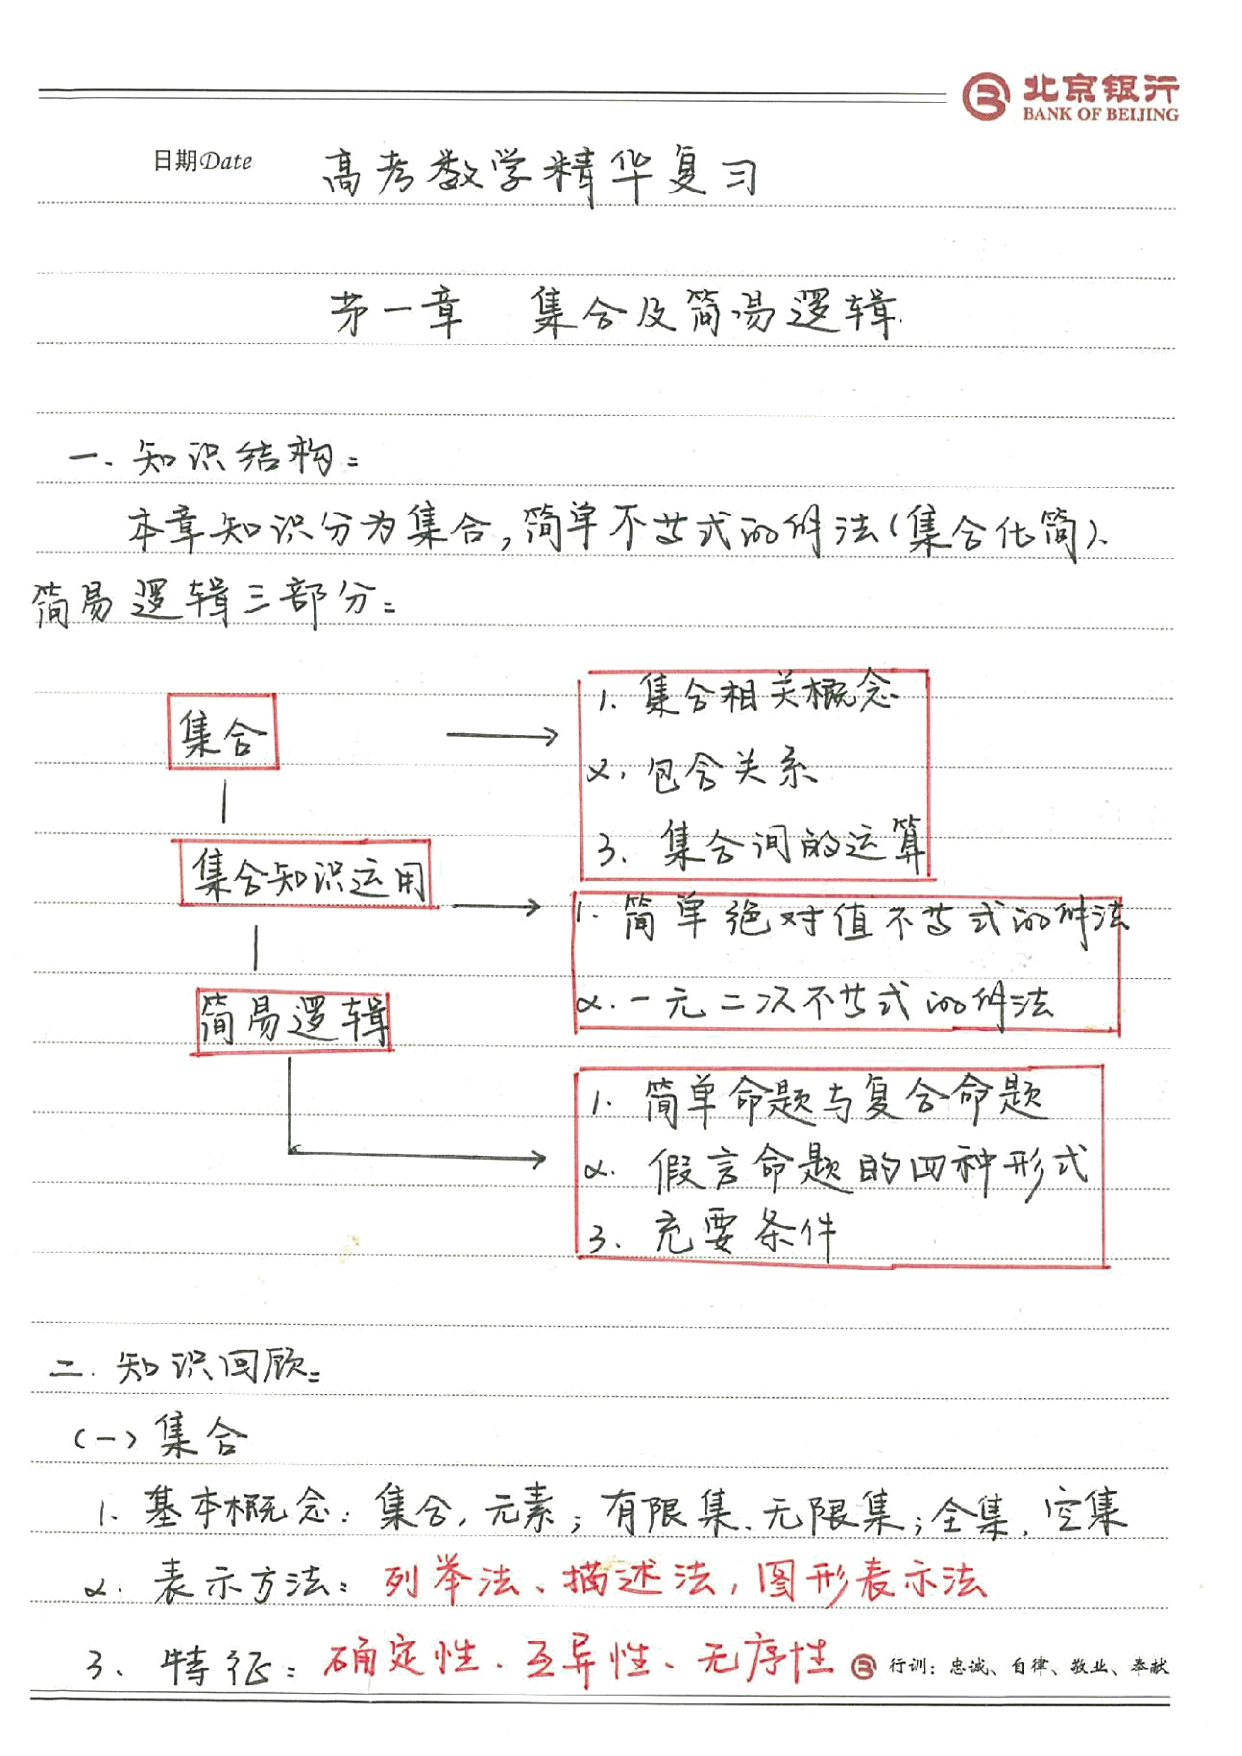 北京银行
BANK OF BEIJING
日期Date 高考数学精华复习
第一章 集合及简易逻辑.
一、知识结构:
本章知识分为集合,简单不等式的解法(集合化简)、
简易逻辑三部分:
集合
1. 集合相关概念
2. 包含关系
3. 集合间的运算
集合知识运用
1. 简单绝对值不等式的解法
2. 一元二次不等式的解法
简易逻辑
1. 简单命题与复合命题
2. 假言命题的四种形式
3. 充要条件
二. 知识回顾:
(一) 集合
1. 基本概念: 集合, 元素; 有限集、无限集; 全集, 空集
2. 表示方法: 列举法、描述法, 图形表示法
3、特征: 确定性、互异性、无序性
行训: 忠诚、自律、敬业、奉献